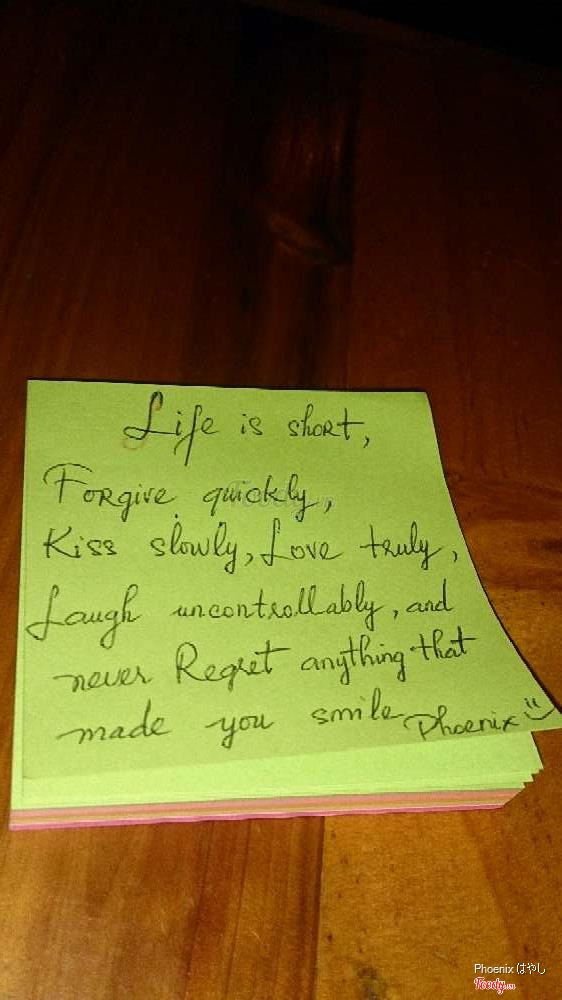 Life is short,
Forgive quickly,
Kiss slowly, Love truly,
Laugh uncontrollably, and
never Regret anything that
made you smile Phoenix
Phoenix はやし
Foody.vn